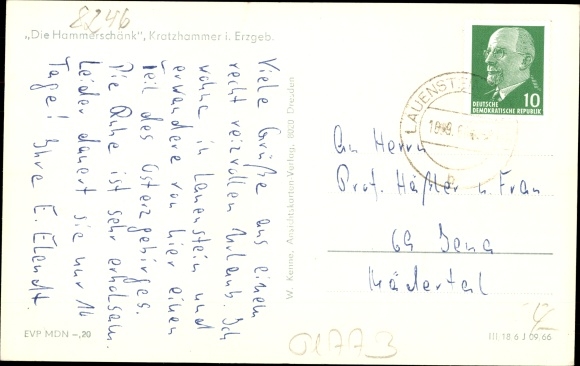 8246
„Die Hammerschänk", Kratzhammer i. Erzgeb.
Viele Grüße aus einem
recht reizvollen Urlaub. Ich
wohne in Lauenstein und
erwandere von hier einen
Teil des Osterzgebirges.
Die Ruhe ist sehr erholsam.
Leider dauert sie nur 14
Tage! Ihre E. Elendt.
W. Kenne, Ansichtskarten-Verlag, 8020 Dresden
LAUENST
DEUTSCHE
DEMOKRATISCHE REPUBLIK
10
An Herrn
Prof. Häßler u. Frau
69 Jena
Mädertal
EVP MDN –,20
III 18 6 J 09 66
01773